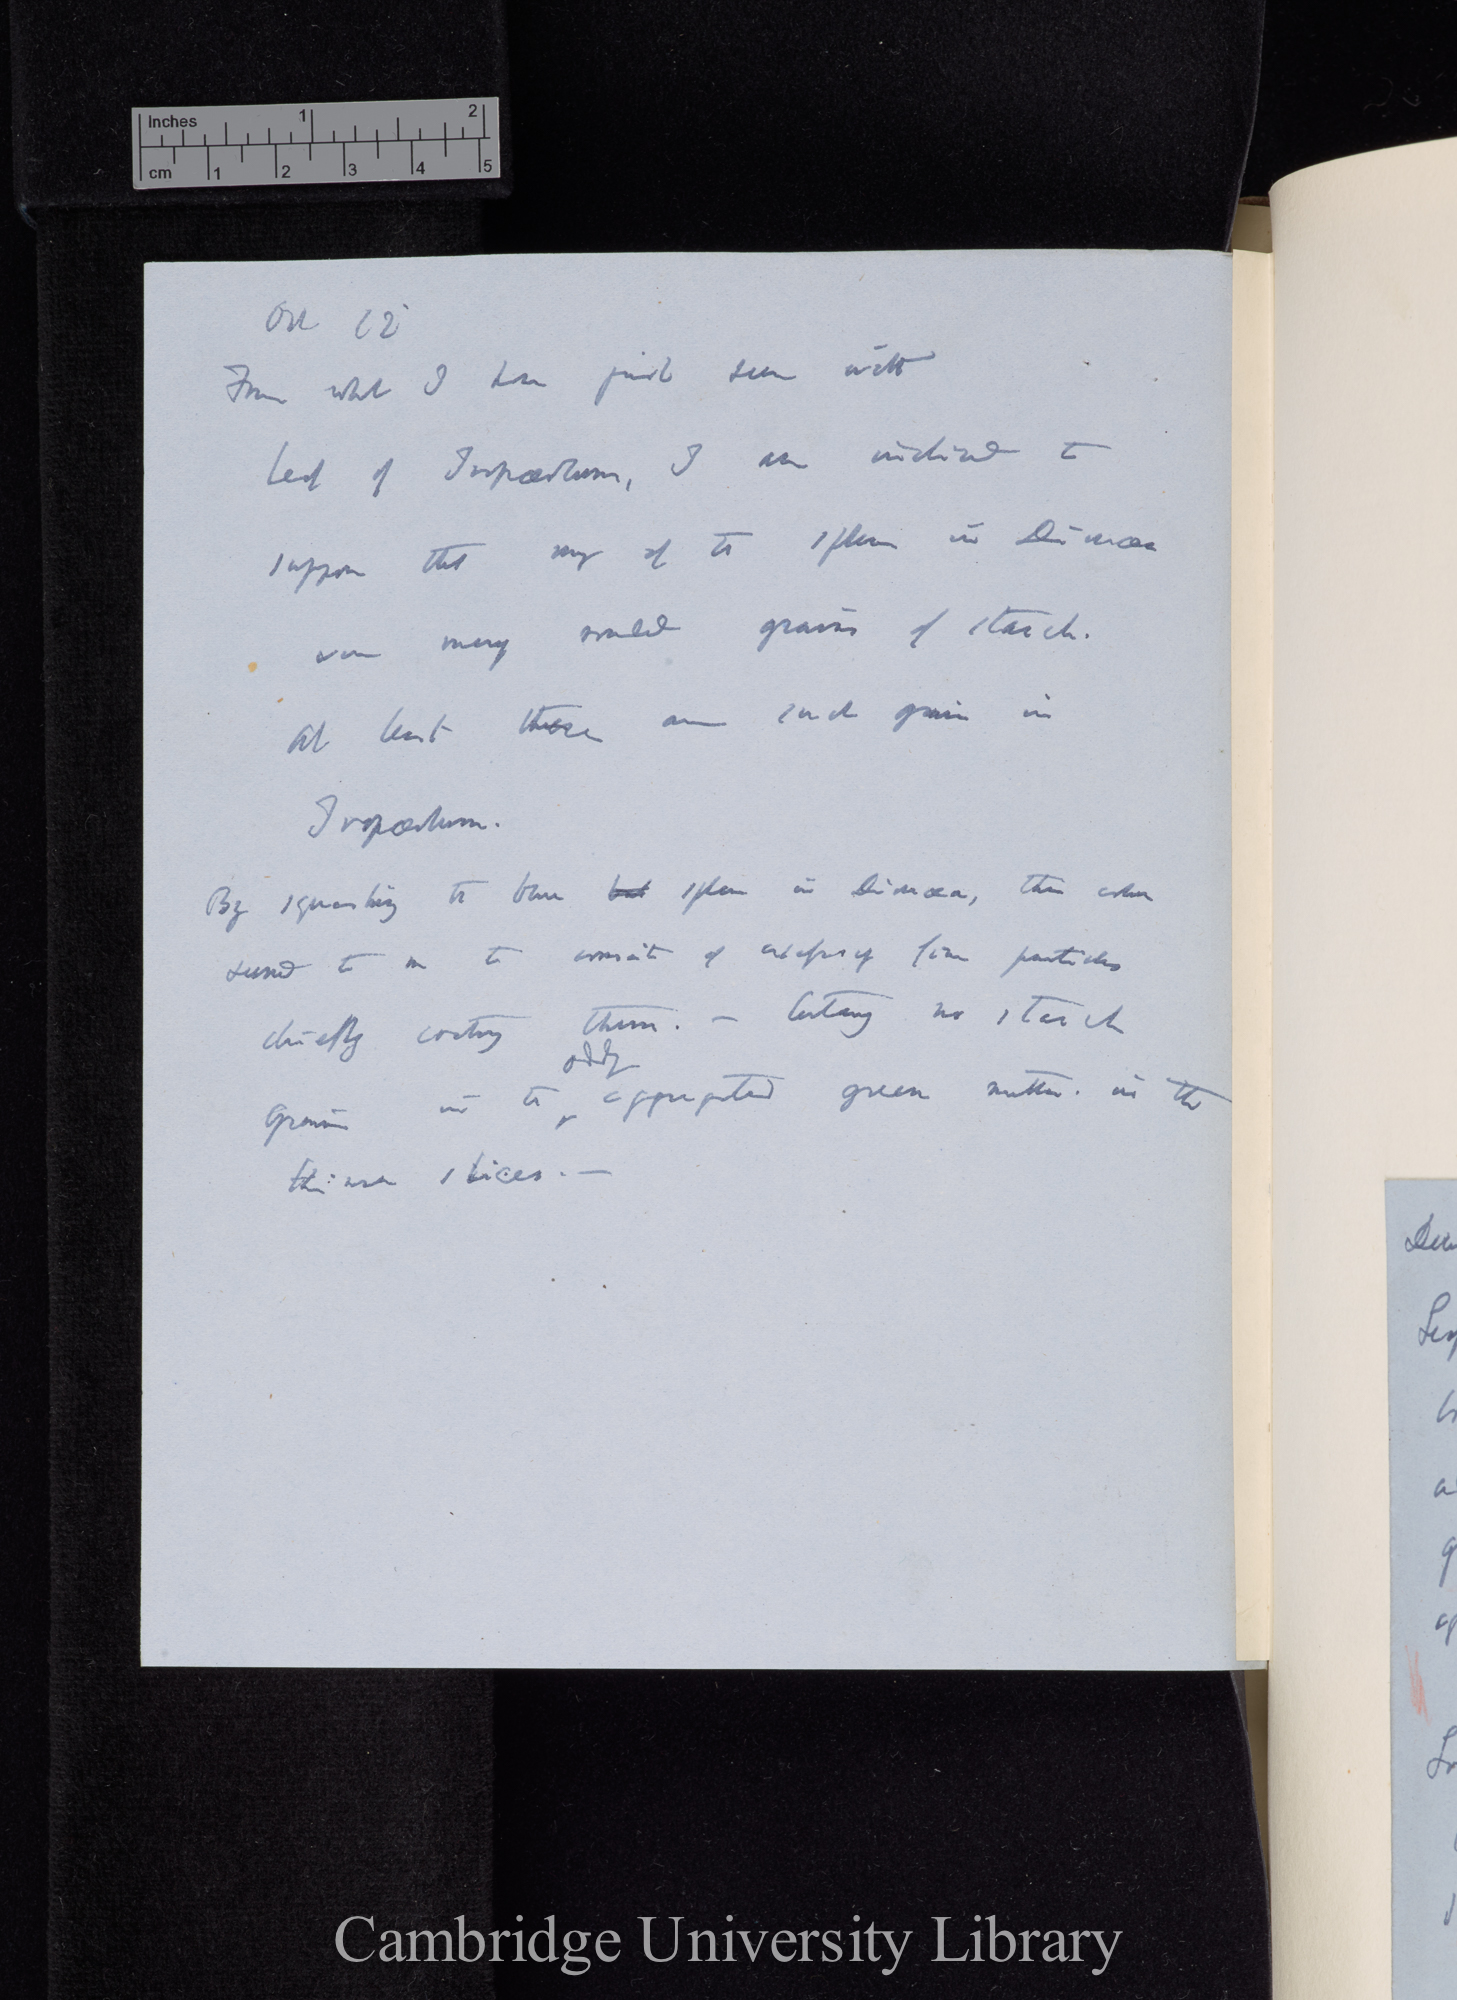 Inches 1 2
cm 1 2 3 4 5
Oct 12
From what I have just seen with
leaf of Tropæolum, I am inclined to
suppose that my of the spheres in Dionæa
were many small grains of starch.
At least there are such grains in
Tropæolum.
By squashing the blue but spheres in Dionæa, the colour
seemed to me to consist of excessively fine particles
chiefly coating them. — Certainly no starch
grains in the oddly aggregated green matter. in the
thinner slices. —
Cambridge University Library